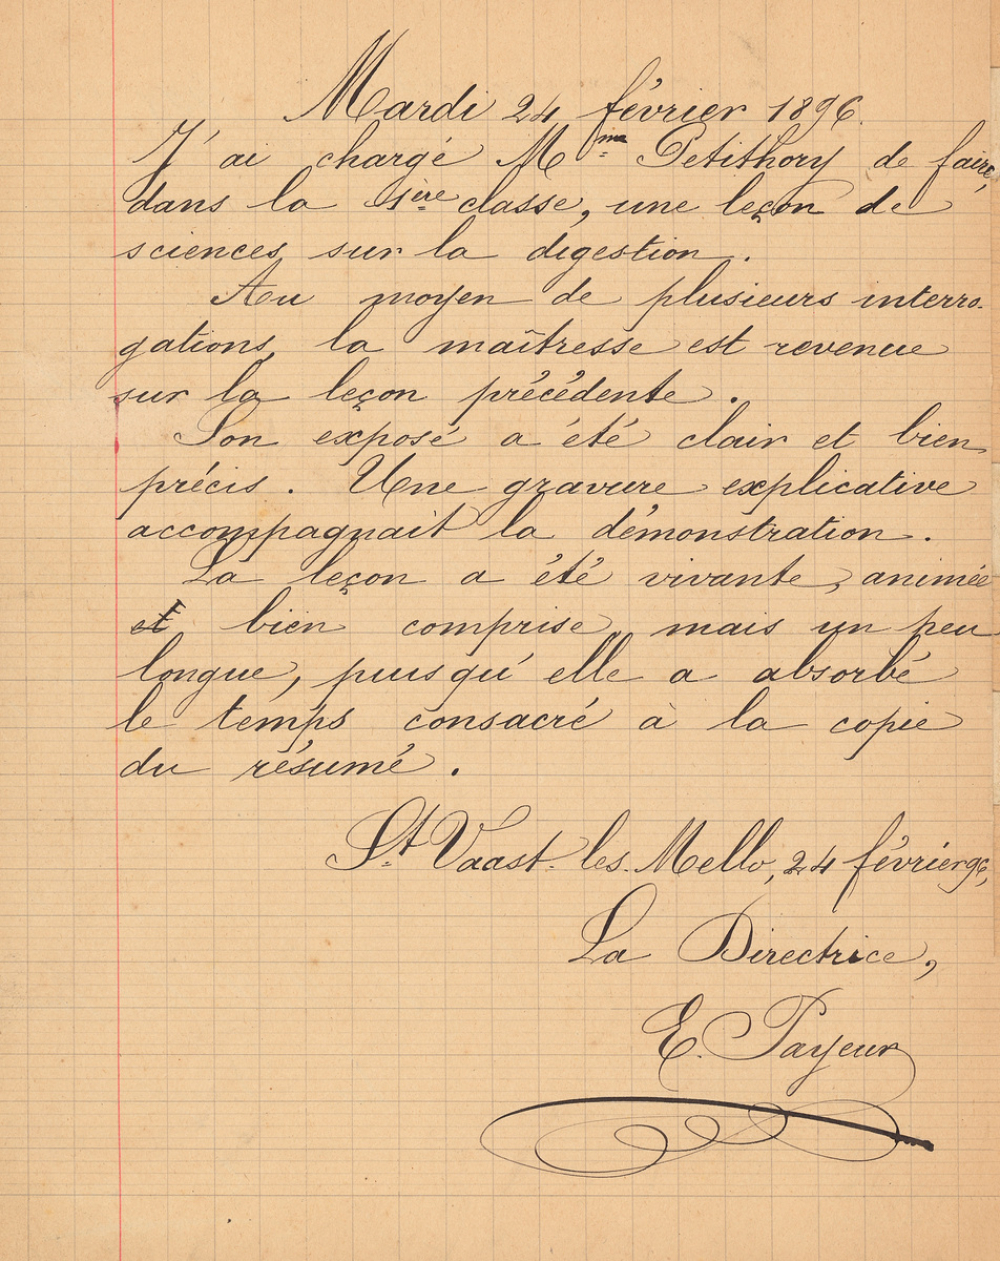 Mardi 24 février 1896.
J'ai chargé Mme Petithory de faire,
dans la 1ère classe, une leçon de
sciences sur la digestion.
Au moyen de plusieurs interro-
gations, la maîtresse est revenue
sur la leçon précédente.
Son exposé a été clair et bien
précis. Une gravure explicative
accompagnait la démonstration.
La leçon a été vivante, animée
et bien comprise, mais un peu
longue, puisqu'elle a absorbé
le temps consacré à la copie
du résumé.
St Vaast-les-Mello, 24 février 96,
La Directrice,
E. Payeur